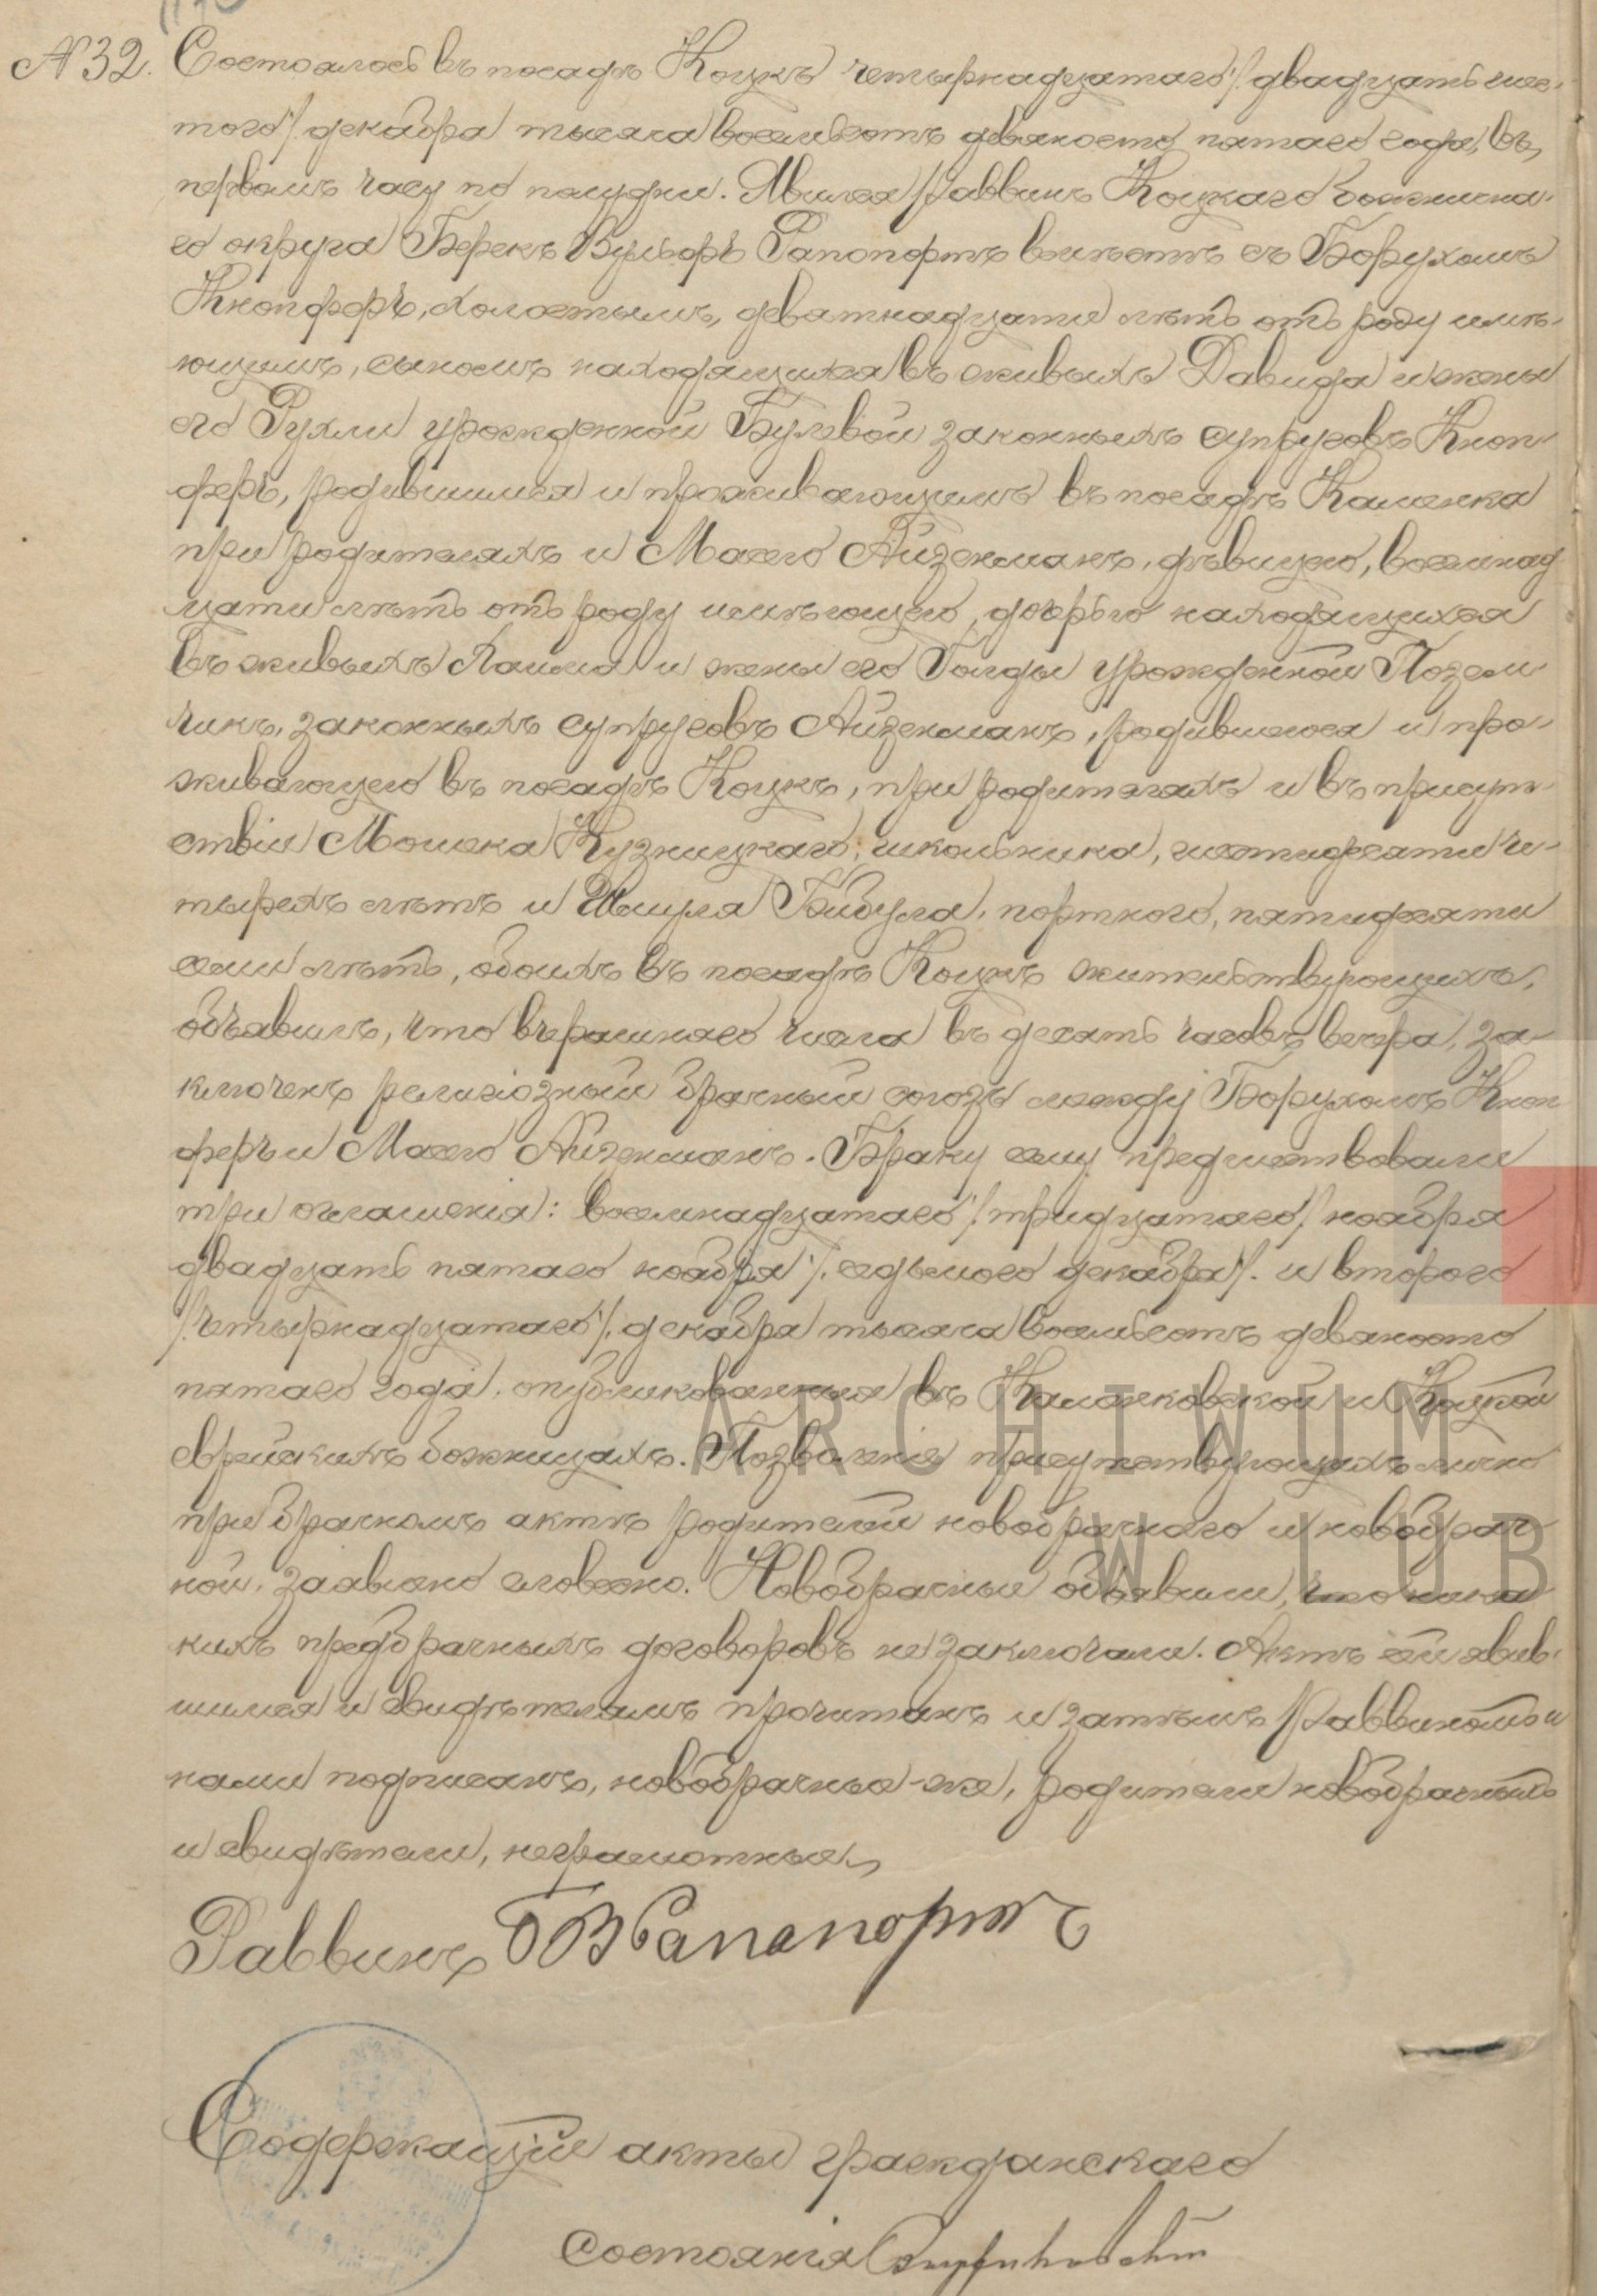 № 32. Состоялось въ посадѣ Коцкѣ четырнадцатаго /двадцать шес-
того/ декабря тысяча восемьсотъ девяносто пятаго года, въ
первомъ часу по полудни. Явился раввинъ Коцкаго Божнична-
го округа Берекъ Вульфъ Рапопортъ вмѣстѣ съ Борухомъ
Кнопферъ, холостымъ, девятнадцати лѣтъ отъ роду имѣ-
ющимъ, сыномъ находящихся въ живыхъ Давида и жены
его Рухли урожденной Бульвой законныхъ супруговъ Кноп-
феръ, родившимся и проживающимъ въ посадѣ Каменка
при родителяхъ и Масею Айзенманъ, дѣвицею, восемнад
цати лѣтъ отъ роду имѣющею, дочерью находящихся
въ живыхъ и жены его Голды урожденной Позем
чикъ, законныхъ супруговъ Айзенманъ, родившеюся и про-
живающею въ посадѣ Коцкѣ, при родителяхъ и въ присут-
ствіи Мошека Кузницкаго, школьника, шестидесяти че-
тырехъ лѣтъ и Бибула, портного, пятидесяти
семи лѣтъ, обоихъ въ посадѣ Коцкѣ жительствующихъ,
объявилъ, что вчерашняго числа въ десять часовъ вечера, за-
ключенъ религіозный брачный союзъ между Борухомъ Кноп
феръ и Масею Айзенманъ. Браку сему предшествовали
три оглашенія: восемнадцатаго /тридцатаго/ ноября
двадцать пятаго ноября /седьмого декабря/. и второго
/четырнадцатаго/. декабря тысяча восемьсотъ девяносто
пятаго года, опубликованныя въ Каменковской и Коцкой
еврейскихъ божницахъ. Позволеніе присутствующихъ лично
при брачномъ актѣ родителей новобрачнаго и новобрач
ной, заявлено словесно. Новобрачные объявили, что ника
кихъ предбрачныхъ договоровъ не заключали. Актъ сей явив-
шимся и свидѣтелямъ прочитанъ и затѣмъ Раввиномъ и
нами подписанъ, новобрачные-же, родители новобрачныхъ
и свидѣтели, неграмотные
Раввинъ БВ Рапапортъ
Содержащій акты гражданскаго
состоянія